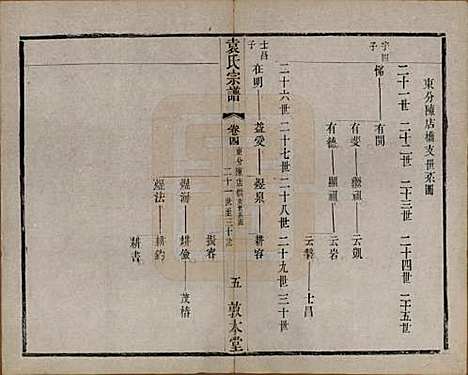 東分陳店橋支世系圖
二十一世 二十二世 二十三世 二十四世 二十五世
有聞
有斐 顯祖 云凱
有德 顯祖 云岩
云磐 士昌
袁氏宗譜
卷四
東分陳店橋支世系圖
二十一世至三十世
五
敦本堂
二十六世 二十七世 二十八世 二十九世 三十世
士昌子
在明 益愛 煜泉 耕容
振容
煜海 耕儉 茂椿
煜法 耕鈞
耕書